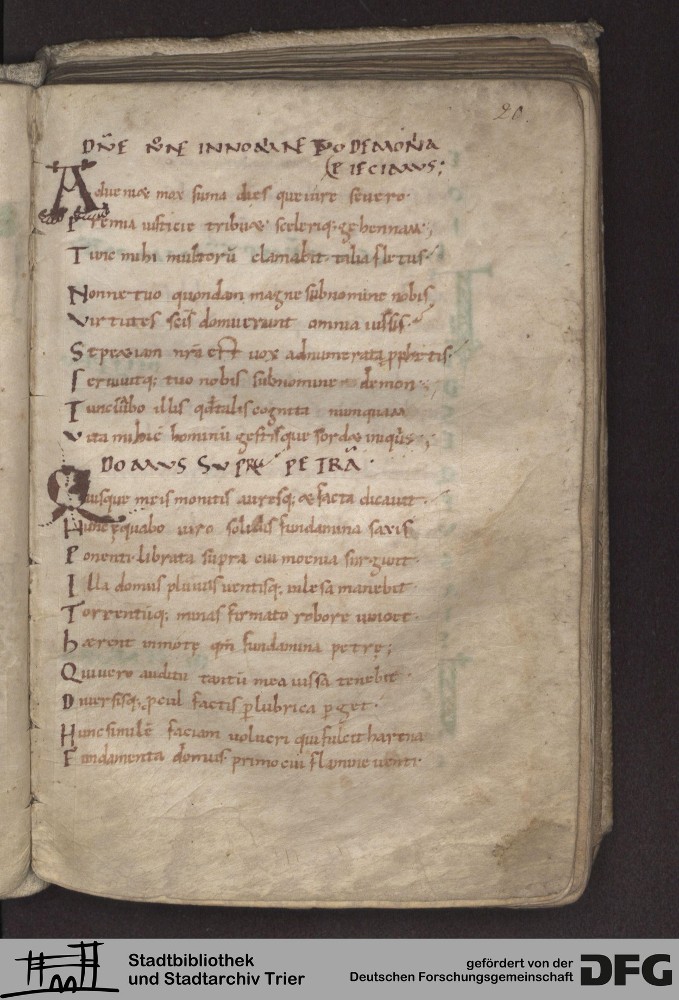 20.
DN̄E NŌNE IN NOMINE TVO DEMONIA
EIECIMUS;
Adveniæ mox suma dies que iure severo·
Premia iusticie tribuæ scelerıq· gehennam;
Tunc mihi multorū clamabit talia fletus·
Nonne tuo quondam magne sub nomine nobis
Virtutes seis domuerunt omnia iussis·
St præsian nrā est vox adnumerata pphetis·
Serviuitq; tuo nobis sub nomine demon·
Tunc illis qd talis cognita nunquam
Vita mihi ē hominū gestis que sordæ iniquis;
DOMUS SUPRE PETRĀ·
Quisque meis monitis auresq; æ facta dicavit·
Hunc equabo viro solidis fundamina saxis
Ponenti· librata supra cui moenia surgunt·
Illa domus pluviis ventisq; inlesa manebit·
Torrentūq; minas firmato robore vincet·
Hærent inmotę qm̄ fundamina petrę;
Qui vero auditu tantū mea iussa tenebit·
Diversisq; pcul factis p lubrica pget·
Hunc similē faciam volucri qui fulcit harena
Fundamenta domus primo cui flamine venti·
Stadtbibliothek
und Stadtarchiv Trier
gefördert von der
Deutschen Forschungsgemeinschaft
DFG